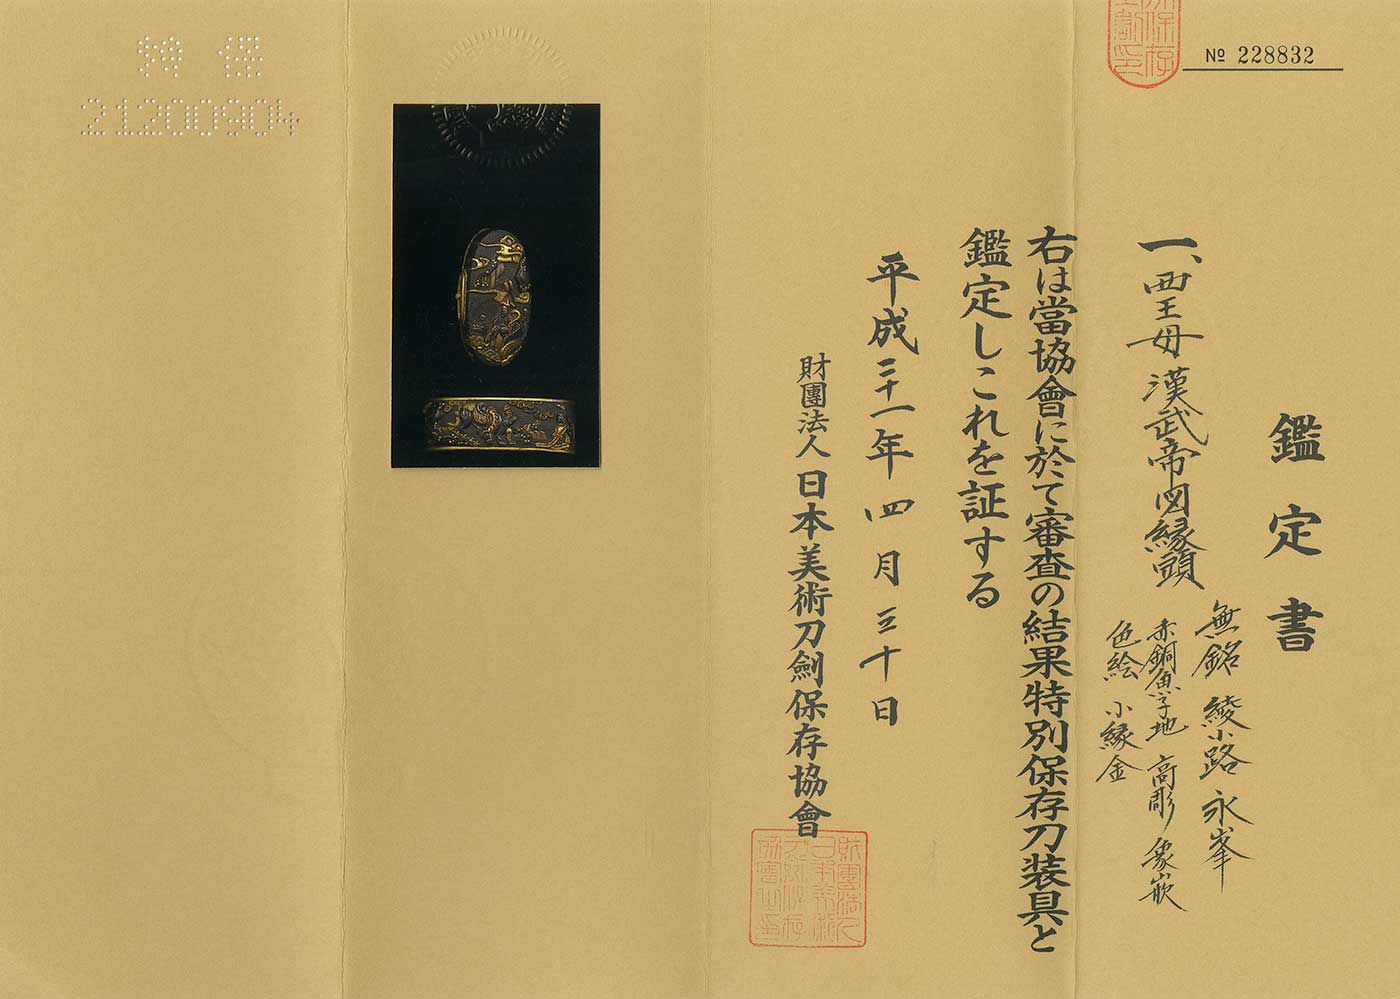 № 228832
鑑定書
一、西王母 漢武帝図縁頭
無銘 綾小路 永峯
赤銅魚子地 高彫 象嵌
色絵 小縁金
右は當協會に於て審査の結果特別保存刀装具と
鑑定しこれを証する
平成二十一年四月三十日
財團法人 日本美術刀劍保存協會
特 保
21200904